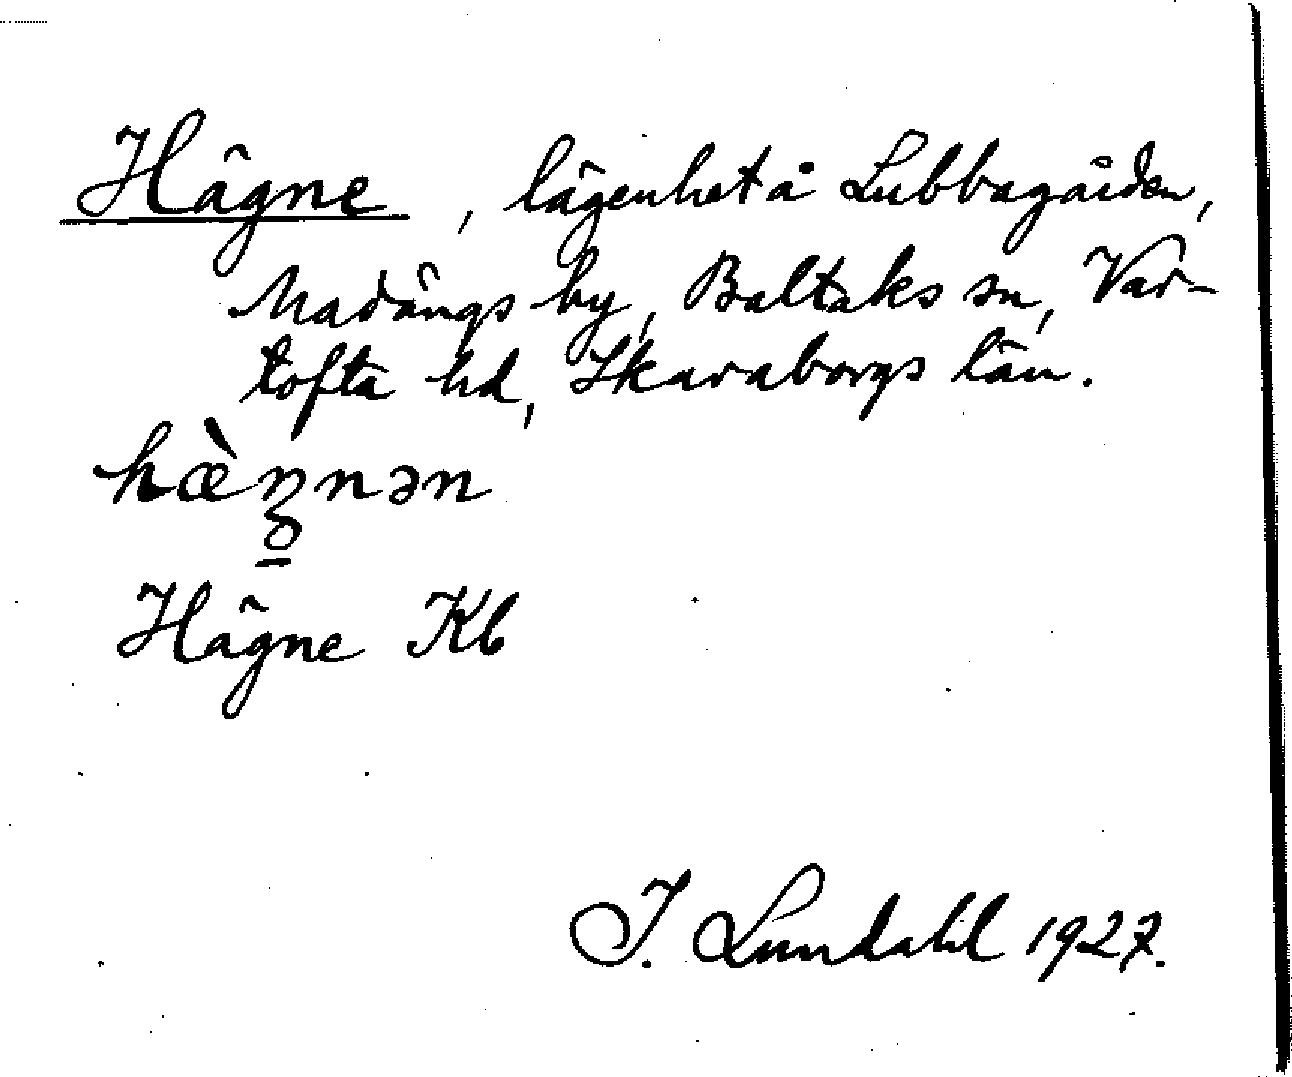 Hägne, lägenhet å Lubbagården,
Madängs by, Baltaks sn, Var-
tofta hd, Skaraborgs län.
hæ̀ŋnən
Hägne Kb
I. Lundahl 1927.